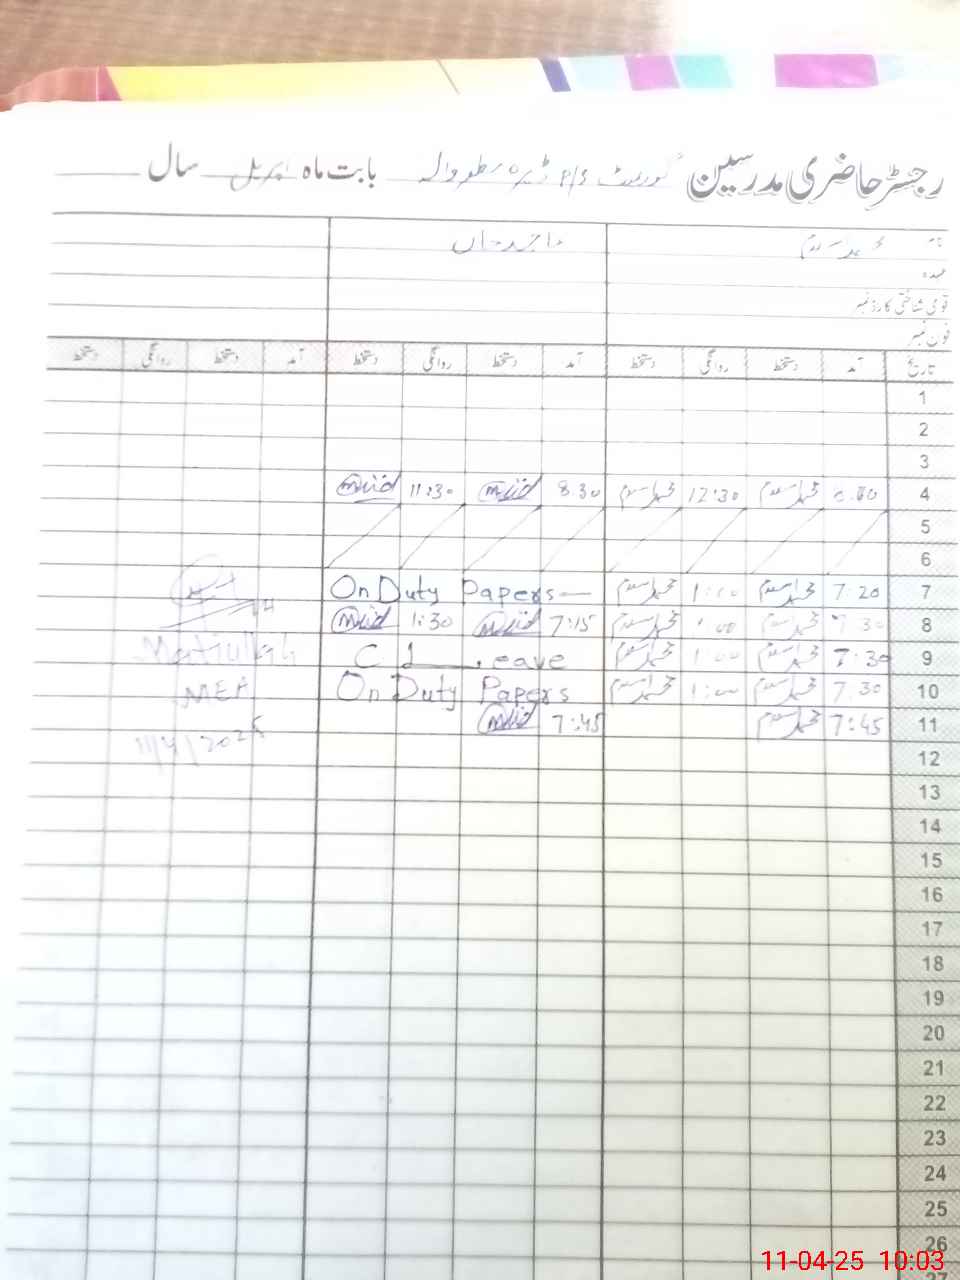 رجسٹر حاضری مدرسین گورنمنٹ P/S ڈیرہ بابت ماہ اپریل سال
نام محمد اسلام ماجد خان
عہدہ
قومی شناختی کارڈ نمبر
فون نمبر
تاریخ آمد دستخط روانگی دستخط آمد دستخط روانگی دستخط آمد دستخط روانگی دستخط
1
2
3
4 8:00 محمد اسلام 12:30 محمد اسلام 8:30 11:30
5
6
7 7:20 محمد اسلام 1:00 محمد اسلام On Duty Papers
8 7:30 محمد اسلام 1:00 محمد اسلام 7:15 1:30
9 7:30 محمد اسلام 1:00 محمد اسلام C L Leave
10 7:30 محمد اسلام 1:00 محمد اسلام On Duty Papers
11 7:45 محمد اسلام 7:45
Matiullah
MEA
11/4/2025
12
13
14
15
16
17
18
19
20
21
22
23
24
25
26
27
11-04-25 10:03